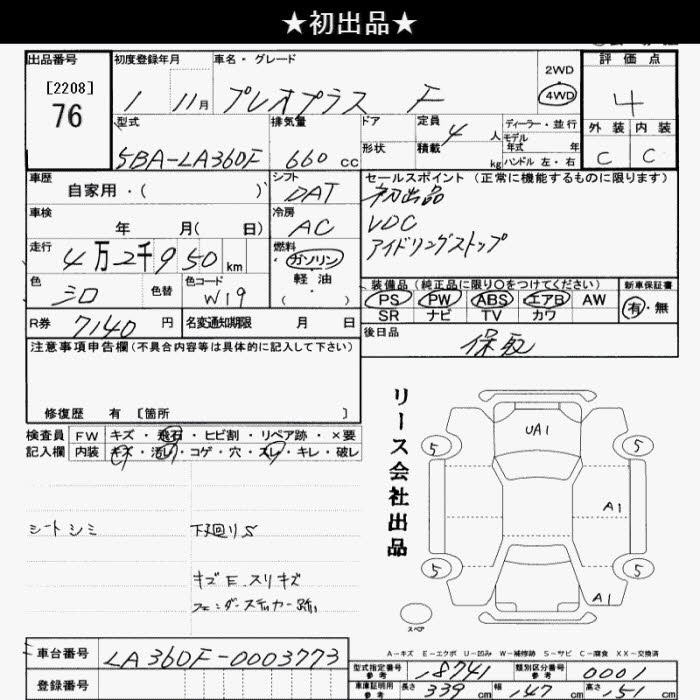 ★初出品★
出品番号 初度登録年月 車名・グレード 2WD 評価点
[2208] 76 1 11月 プレオプラス F 4WD 4
型式 排気量 ドア 定員 4人 ディーラー・並行 外装 内装
モデル年式 年
5BA-LA360F 660 cc 形状 積載 kg ハンドル 左・右 C C
車歴 自家用・( ) シフト DAT セールスポイント(正常に機能するものに限ります)
初出品
車検 年 月( 日) 冷房 AC VDC
走行 4万2千950km 燃料 ガソリン アイドリングストップ
軽油
( ・ )
色 シロ 色替 色コード W19 装備品(純正品に限り○をつけてください) 新車保証書
PS PW ABS エアB AW 有・無
R券 7140円 名変通知期限 月 日 SR ナビ TV カワ
注意事項申告欄(不具合内容等は具体的に記入して下さい) 後日品 保取
修復歴 有 [箇所 ]
リース会社出品
検査員記入欄 FW キズ・飛石・ヒビ割・リペア跡・×要
内装 キズ・汚レ・コゲ・穴・スレ・キレ・破レ
UA1
5 5
A1
5 5
A1
スペア
シートシミ 下廻りS
キズE スリキズ
フェンダーステッカー跡
A−キズ E−エクボ U−凹み W−補修跡 S−サビ C−腐食 XX−交換済
車台番号 LA360F-0003773
登録番号
型式指定番号 参考 18741 類別区分番号 参考 0001
車庫証明用 参考 長さ 339 cm 幅 147 cm 高さ 151 cm